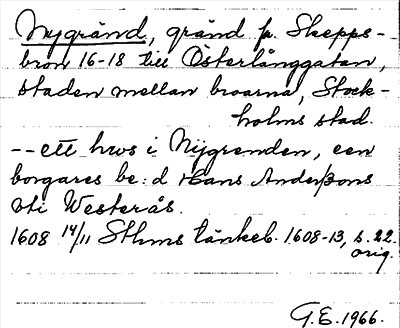 Nygränd, gränd fr. Skepps-
bron 16-18 till Österlånggatan,
staden mellan broarna, Stock-
holms stad.
-- ett hws i Nygrenden, een
borgares be:d Hans Anderßons
vti Westerås.
1608 14/11 Sthms tänkeb. 1608-13, s. 22.
orig.
G.E. 1966.